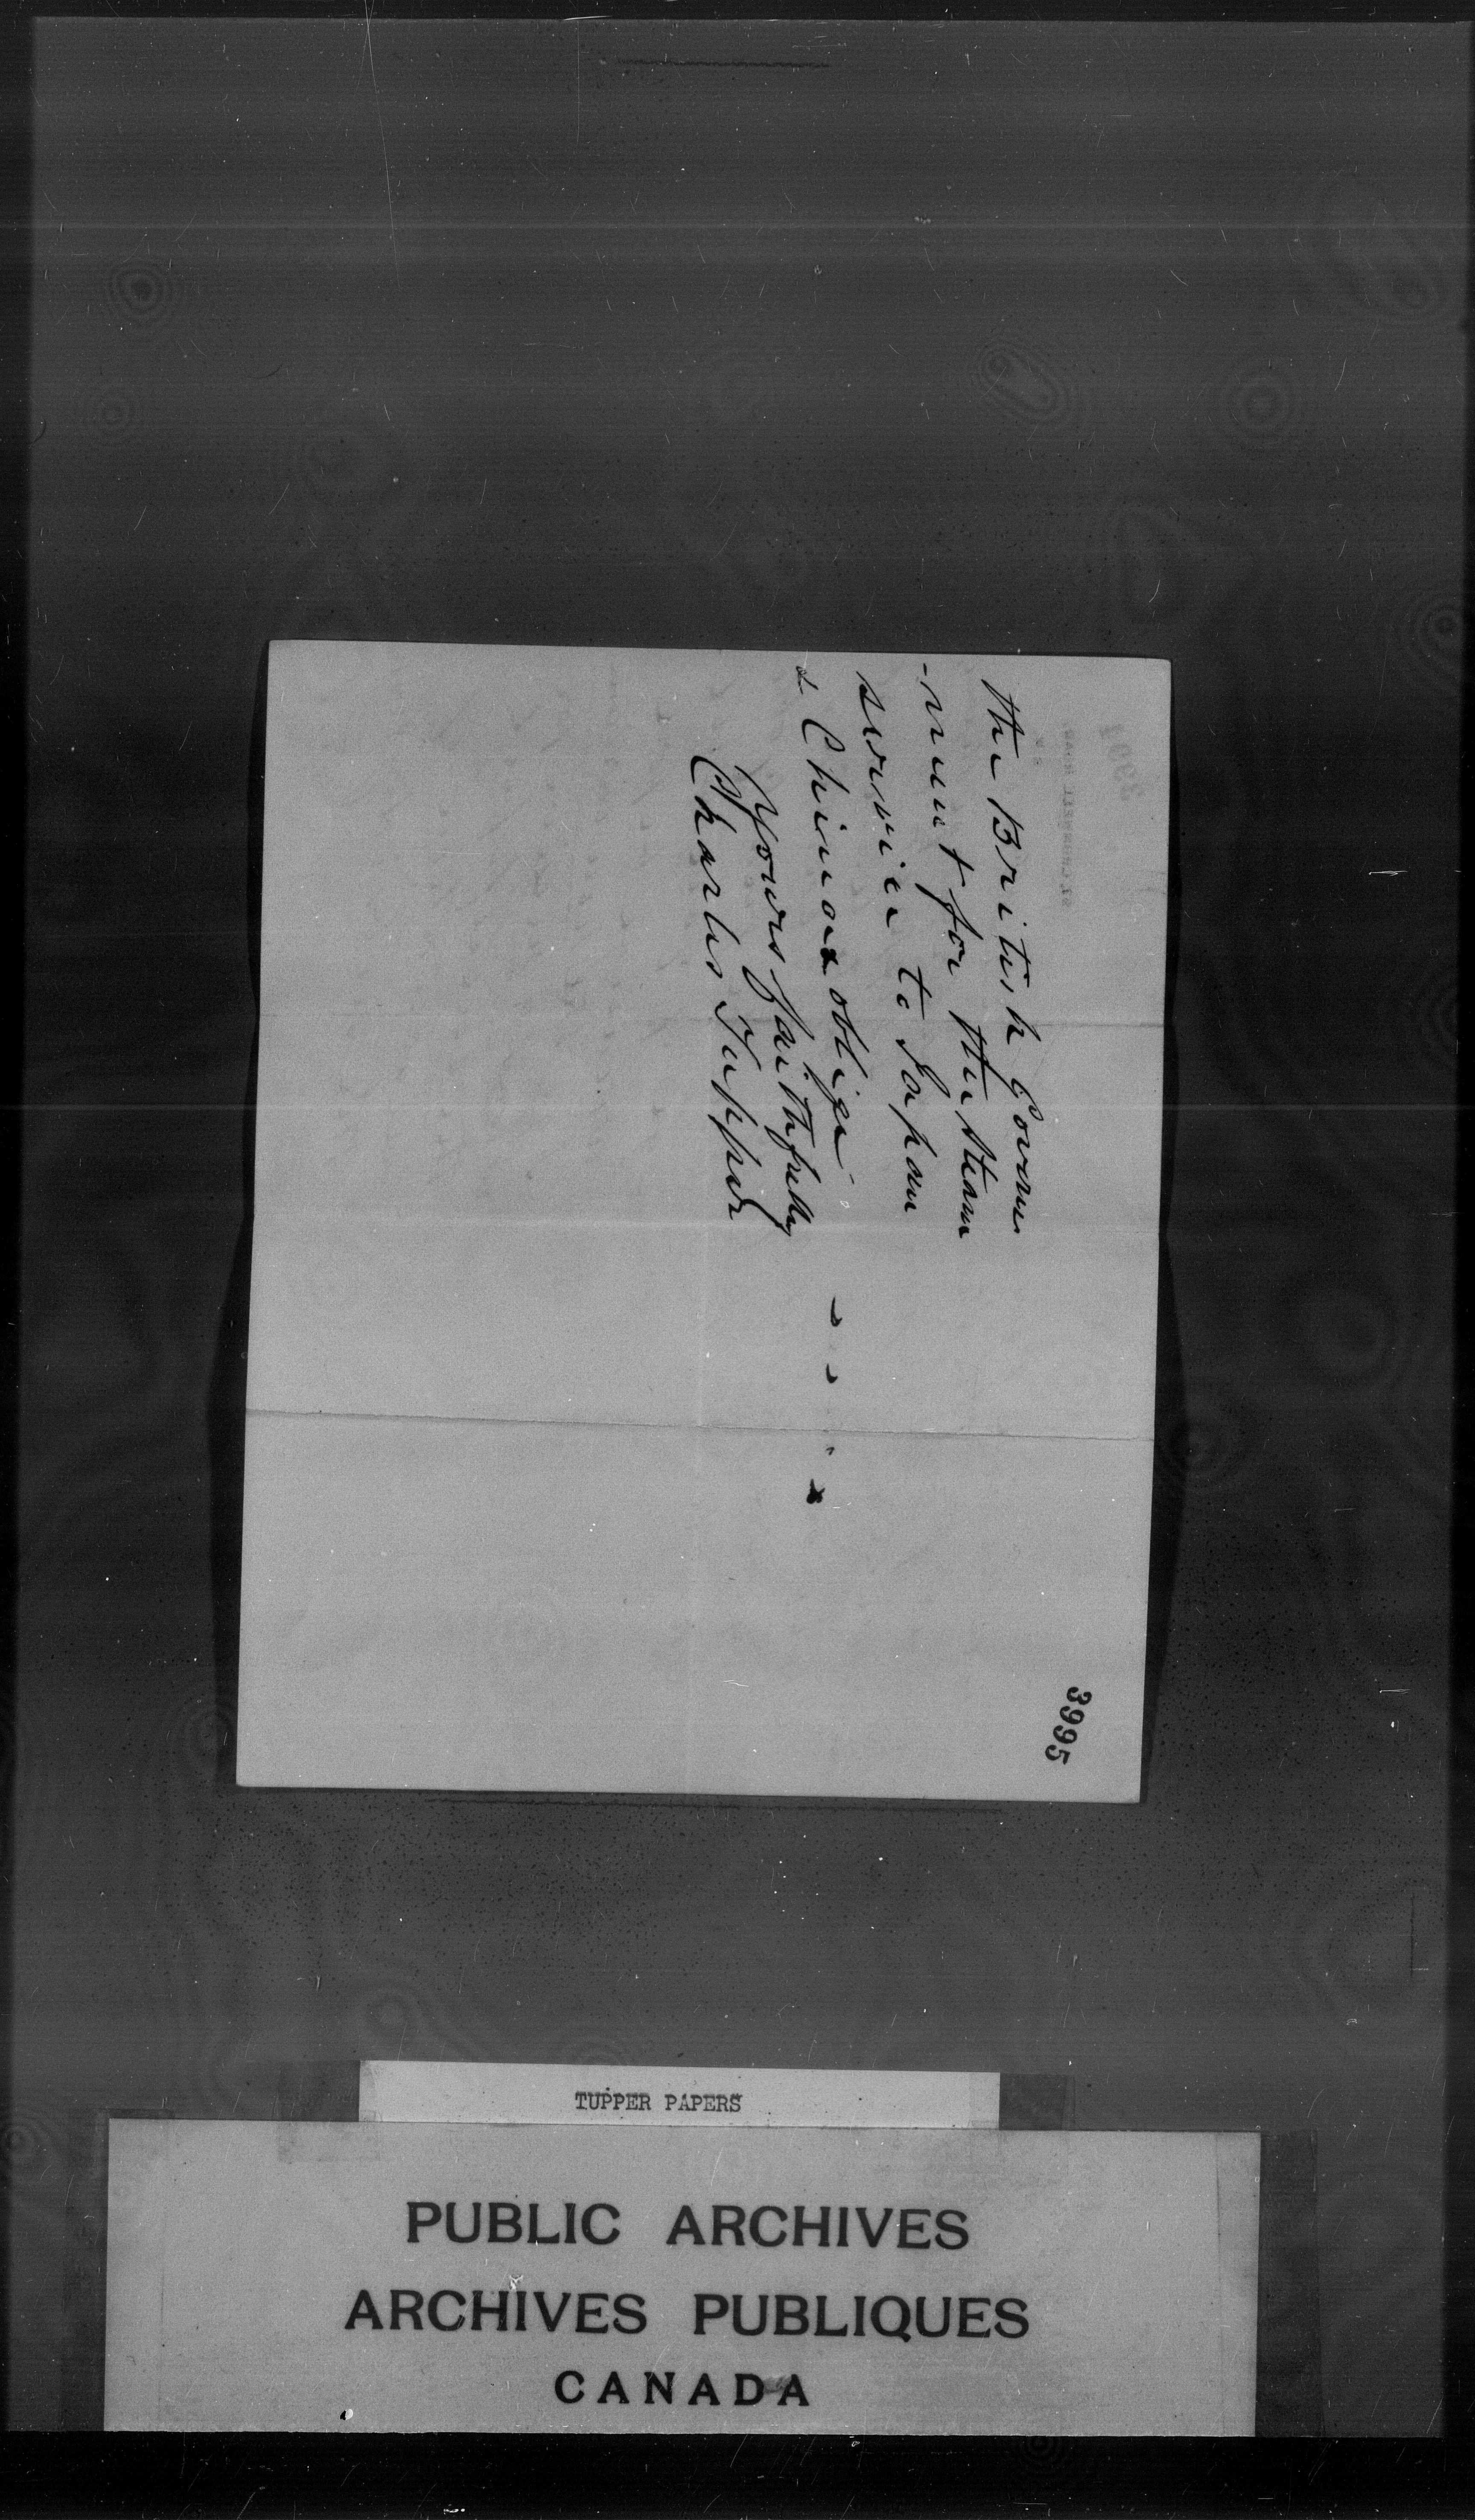 3995
the British Govern
-ment for the steam
service to Japan
& China & oblige
Yours faithfully
Charles Tupper
TUPPER PAPERS
PUBLIC ARCHIVES
ARCHIVES PUBLIQUES
CANADA